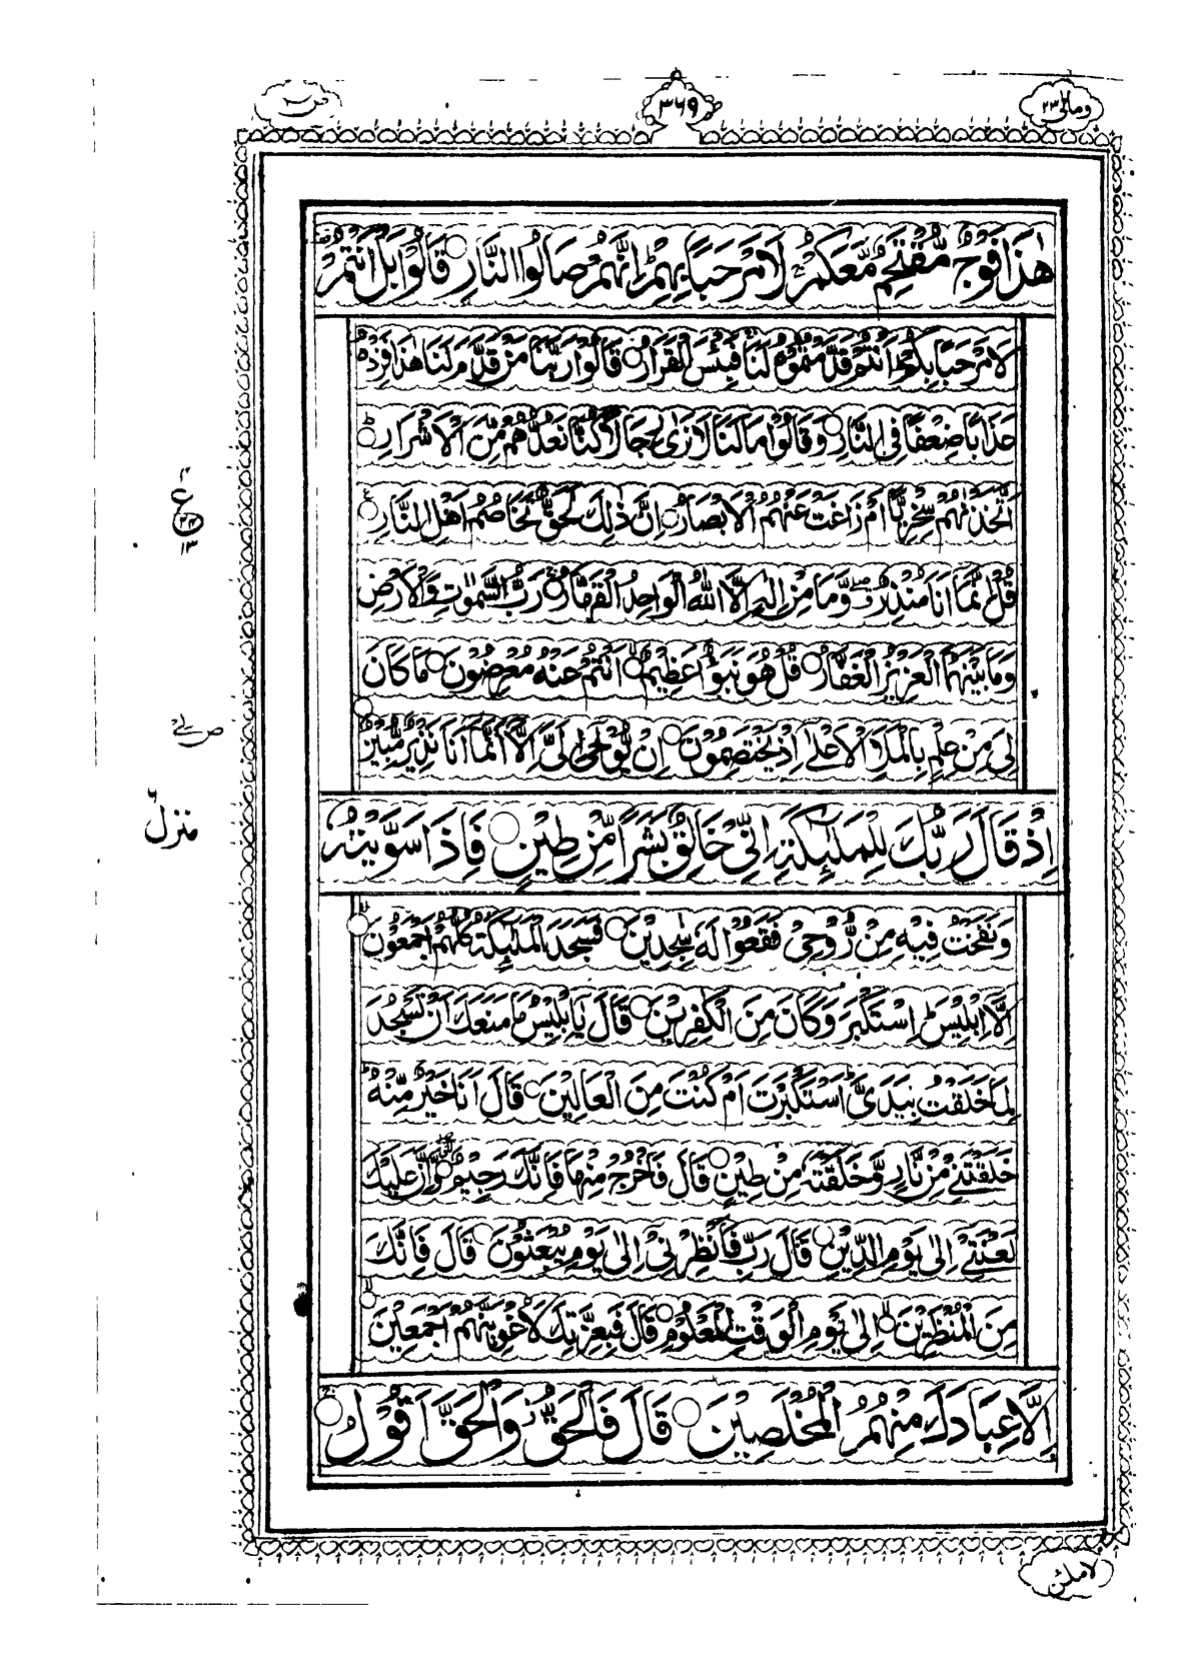 ومالی ۲۳
۳۶۹
ص
هٰذَا فَوْجٌ مُّقْتَحِمٌ مَّعَكُمْ ۚ لَا مَرْحَبًا بِهِمْ ۭ اِنَّهُمْ صَالُوا النَّارِ ○ قَالُوْا بَلْ اَنْتُمْ
لَا مَرْحَبًا بِكُمْ ۭ اَنْتُمْ قَدَّمْتُمُوْهُ لَنَا ۚ فَبِئْسَ الْقَرَارُ ○ قَالُوْا رَبَّنَا مَنْ قَدَّمَ لَنَا هٰذَا فَزِدْهُ
عَذَابًا ضِعْفًا فِي النَّارِ ○ وَقَالُوْا مَا لَنَا لَا نَرٰى رِجَالًا كُنَّا نَعُدُّهُمْ مِّنَ الْاَشْرَارِ ○
اَتَّخَذْنٰهُمْ سِخْرِيًّا اَمْ زَاغَتْ عَنْهُمُ الْاَبْصَارُ ○ اِنَّ ذٰلِكَ لَحَقٌّ تَخَاصُمُ اَهْلِ النَّارِ ○
قُلْ اِنَّمَا اَنَا مُنْذِرٌ ۖ وَّمَا مِنْ اِلٰهٍ اِلَّا اللّٰهُ الْوَاحِدُ الْقَهَّارُ ○ رَبُّ السَّمٰوٰتِ وَالْاَرْضِ
وَمَا بَيْنَهُمَا الْعَزِيْزُ الْغَفَّارُ ○ قُلْ هُوَ نَبَؤٌا عَظِيْمٌ ○ اَنْتُمْ عَنْهُ مُعْرِضُوْنَ ○ مَا كَانَ
لِيَ مِنْ عِلْمٍ بِالْمَلَاِ الْاَعْلٰى اِذْ يَخْتَصِمُوْنَ ○ اِنْ يُّوْحٰى اِلَيَّ اِلَّا اَنَّمَا اَنَا نَذِيْرٌ مُّبِيْنٌ ○
اِذْ قَالَ رَبُّكَ لِلْمَلٰٓئِكَةِ اِنِّيْ خَالِقٌ بَشَرًا مِّنْ طِيْنٍ ○ فَاِذَا سَوَّيْتُهٗ
وَنَفَخْتُ فِيْهِ مِنْ رُّوْحِيْ فَقَعُوْا لَهٗ سٰجِدِيْنَ ○ فَسَجَدَ الْمَلٰٓئِكَةُ كُلُّهُمْ اَجْمَعُوْنَ ○
اِلَّا اِبْلِيْسَ ۭ اِسْتَكْبَرَ وَكَانَ مِنَ الْكٰفِرِيْنَ ○ قَالَ يٰاِبْلِيْسُ مَا مَنَعَكَ اَنْ تَسْجُدَ
لِمَا خَلَقْتُ بِيَدَيَّ ۭ اَسْتَكْبَرْتَ اَمْ كُنْتَ مِنَ الْعَالِيْنَ ○ قَالَ اَنَا خَيْرٌ مِّنْهُ ۭ
خَلَقْتَنِيْ مِنْ نَّارٍ وَّخَلَقْتَهٗ مِنْ طِيْنٍ ○ قَالَ فَاخْرُجْ مِنْهَا فَاِنَّكَ رَجِيْمٌ ○ وَّاِنَّ عَلَيْكَ
لَعْنَتِيْ اِلٰى يَوْمِ الدِّيْنِ ○ قَالَ رَبِّ فَاَنْظِرْنِيْ اِلٰى يَوْمِ يُبْعَثُوْنَ ○ قَالَ فَاِنَّكَ
مِنَ الْمُنْظَرِيْنَ ○ اِلٰى يَوْمِ الْوَقْتِ الْمَعْلُوْمِ ○ قَالَ فَبِعِزَّتِكَ لَاُغْوِيَنَّهُمْ اَجْمَعِيْنَ ○
اِلَّا عِبَادَكَ مِنْهُمُ الْمُخْلَصِيْنَ ○ قَالَ فَالْحَقُّ ۡ وَالْحَقَّ اَقُوْلُ ○
ع
۱۳
منزل
لاملئن